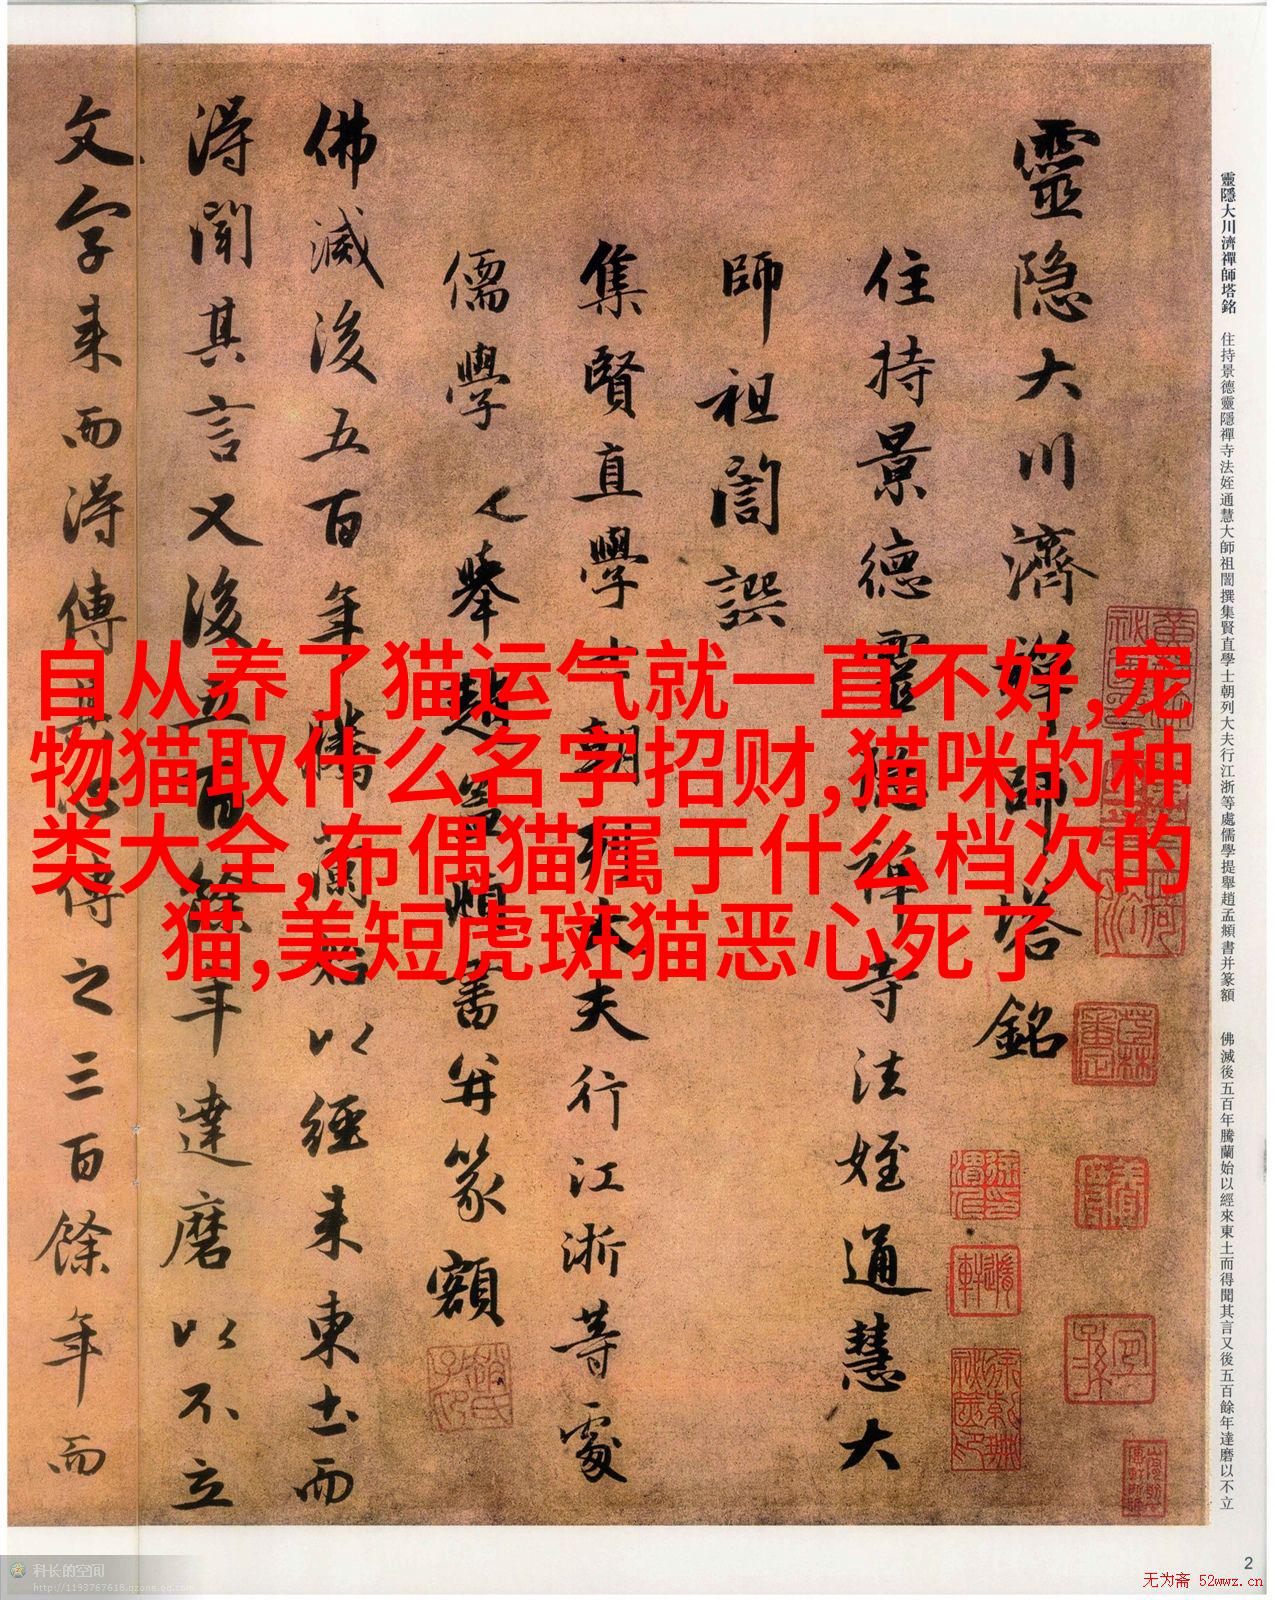 靈隐大川濟禅師塔銘
住持景德靈隐禅寺法姪通慧大
師祖誾譔
集賢直學士朝列大夫行江浙等處
儒學提舉趙孟頫書并篆額
佛滅後五百年騰蘭始以經来東土而
得聞其言又後五百餘年達磨以不立
文字来而得傳其心傳之三百餘年而
靈隱大川濟禪師塔銘 住持景德靈隱禪寺法姪通慧大師祖誾撰集賢直學士朝列大夫行江浙等處儒學提舉趙孟頫書并篆額 佛滅後五百年騰蘭始以經來東土而得聞其言又後五百餘年達磨以不立
自从养了猫运气就一直不好,宠
物猫取什么名字招财,猫咪的种
类大全,布偶猫属于什么档次的
猫,美短虎斑猫恶心死了
2
科长的空间
http://1193767618.qzone.qq.com
无为斋 52wwz.cn